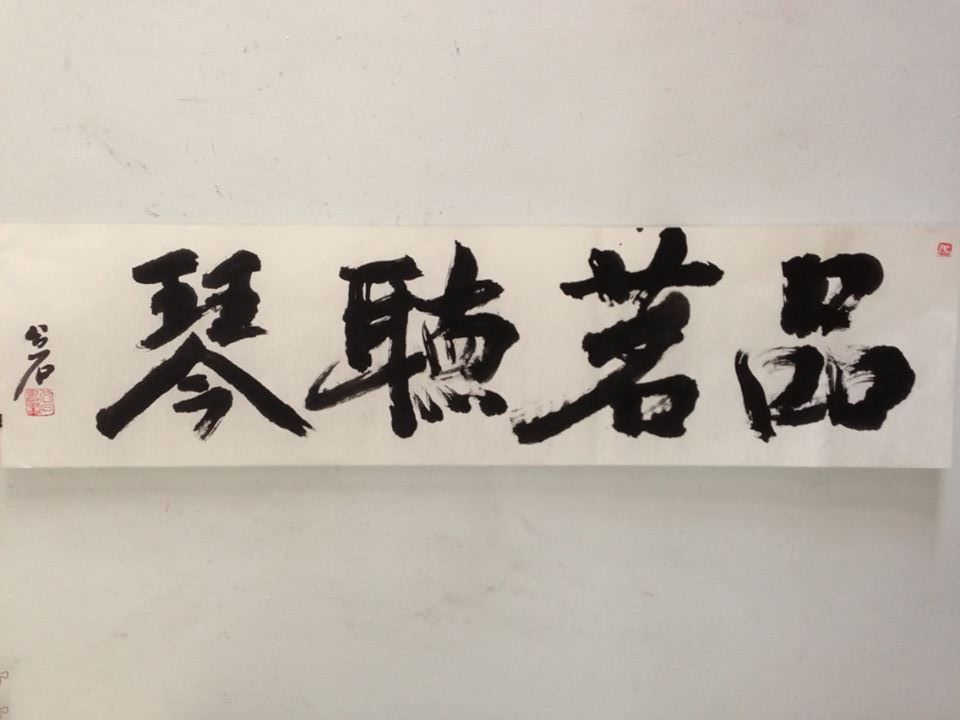 品茗聽琴
公石